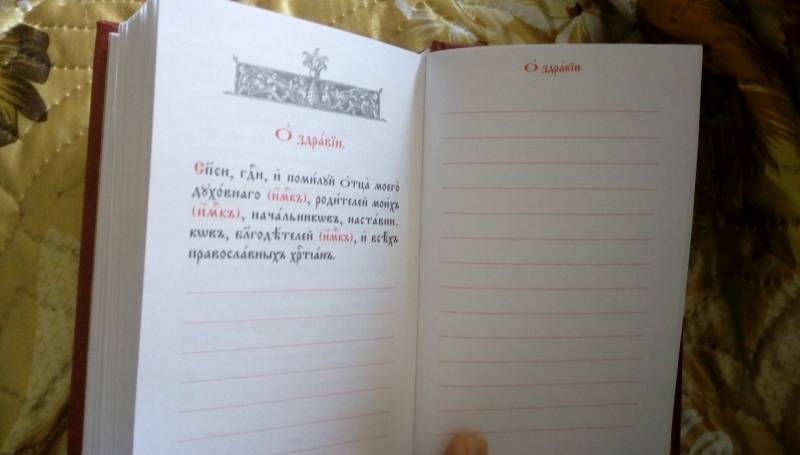 Ѻ҆ здра́вїи.
Сп҃си, гд҇и, и҆ поми́лꙋй ѻ҆тца̀ моего̀
дꙋхо́внаго (и҆́м҃къ), роди́телей мои́хъ
(и҆́м҃къ), нача́льникѡвъ, наста́вни-
кѡвъ, бл҃годѣ́телей (и҆́м҃къ), и҆ всѣ́хъ
правосла́вныхъ хрⷭ҇тїа́нъ.
Ѻ҆ здра́вїи